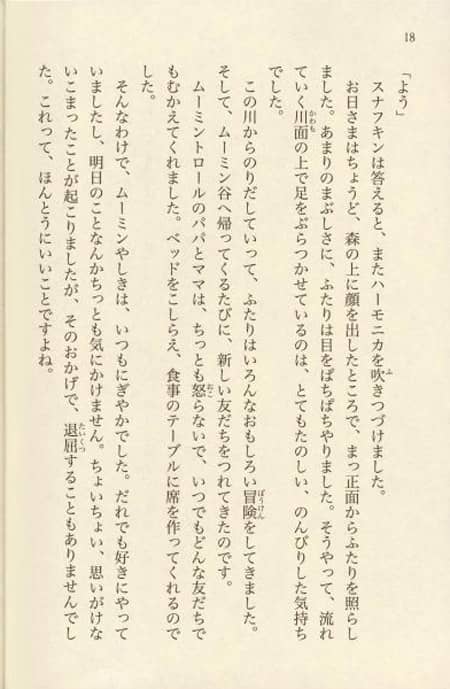 18
「よう」
スナフキンは答えると、またハーモニカを吹きつづけました。
お日さまはちょうど、森の上に顔を出したところで、まっ正面からふたりを照らし
ました。あまりのまぶしさに、ふたりは目をぱちぱちやりました。そうやって、流れ
ていく川面の上で足をぶらつかせているのは、とてもたのしい、のんびりした気持ち
でした。
この川からのりだしていって、ふたりはいろんなおもしろい冒険をしてきました。
そして、ムーミン谷へ帰ってくるたびに、新しい友だちをつれてきたのです。
ムーミントロールのパパとママは、ちっとも怒らないで、いつでもどんな友だちで
もむかえてくれました。ベッドをこしらえ、食事のテーブルに席を作ってくれるので
した。
そんなわけで、ムーミンやしきは、いつもにぎやかでした。だれでも好きにやって
いましたし、明日のことなんかちっとも気にかけません。ちょいちょい、思いがけな
いこまったことが起こりましたが、そのおかげで、退屈することもありませんでし
た。これって、ほんとうにいいことですよね。